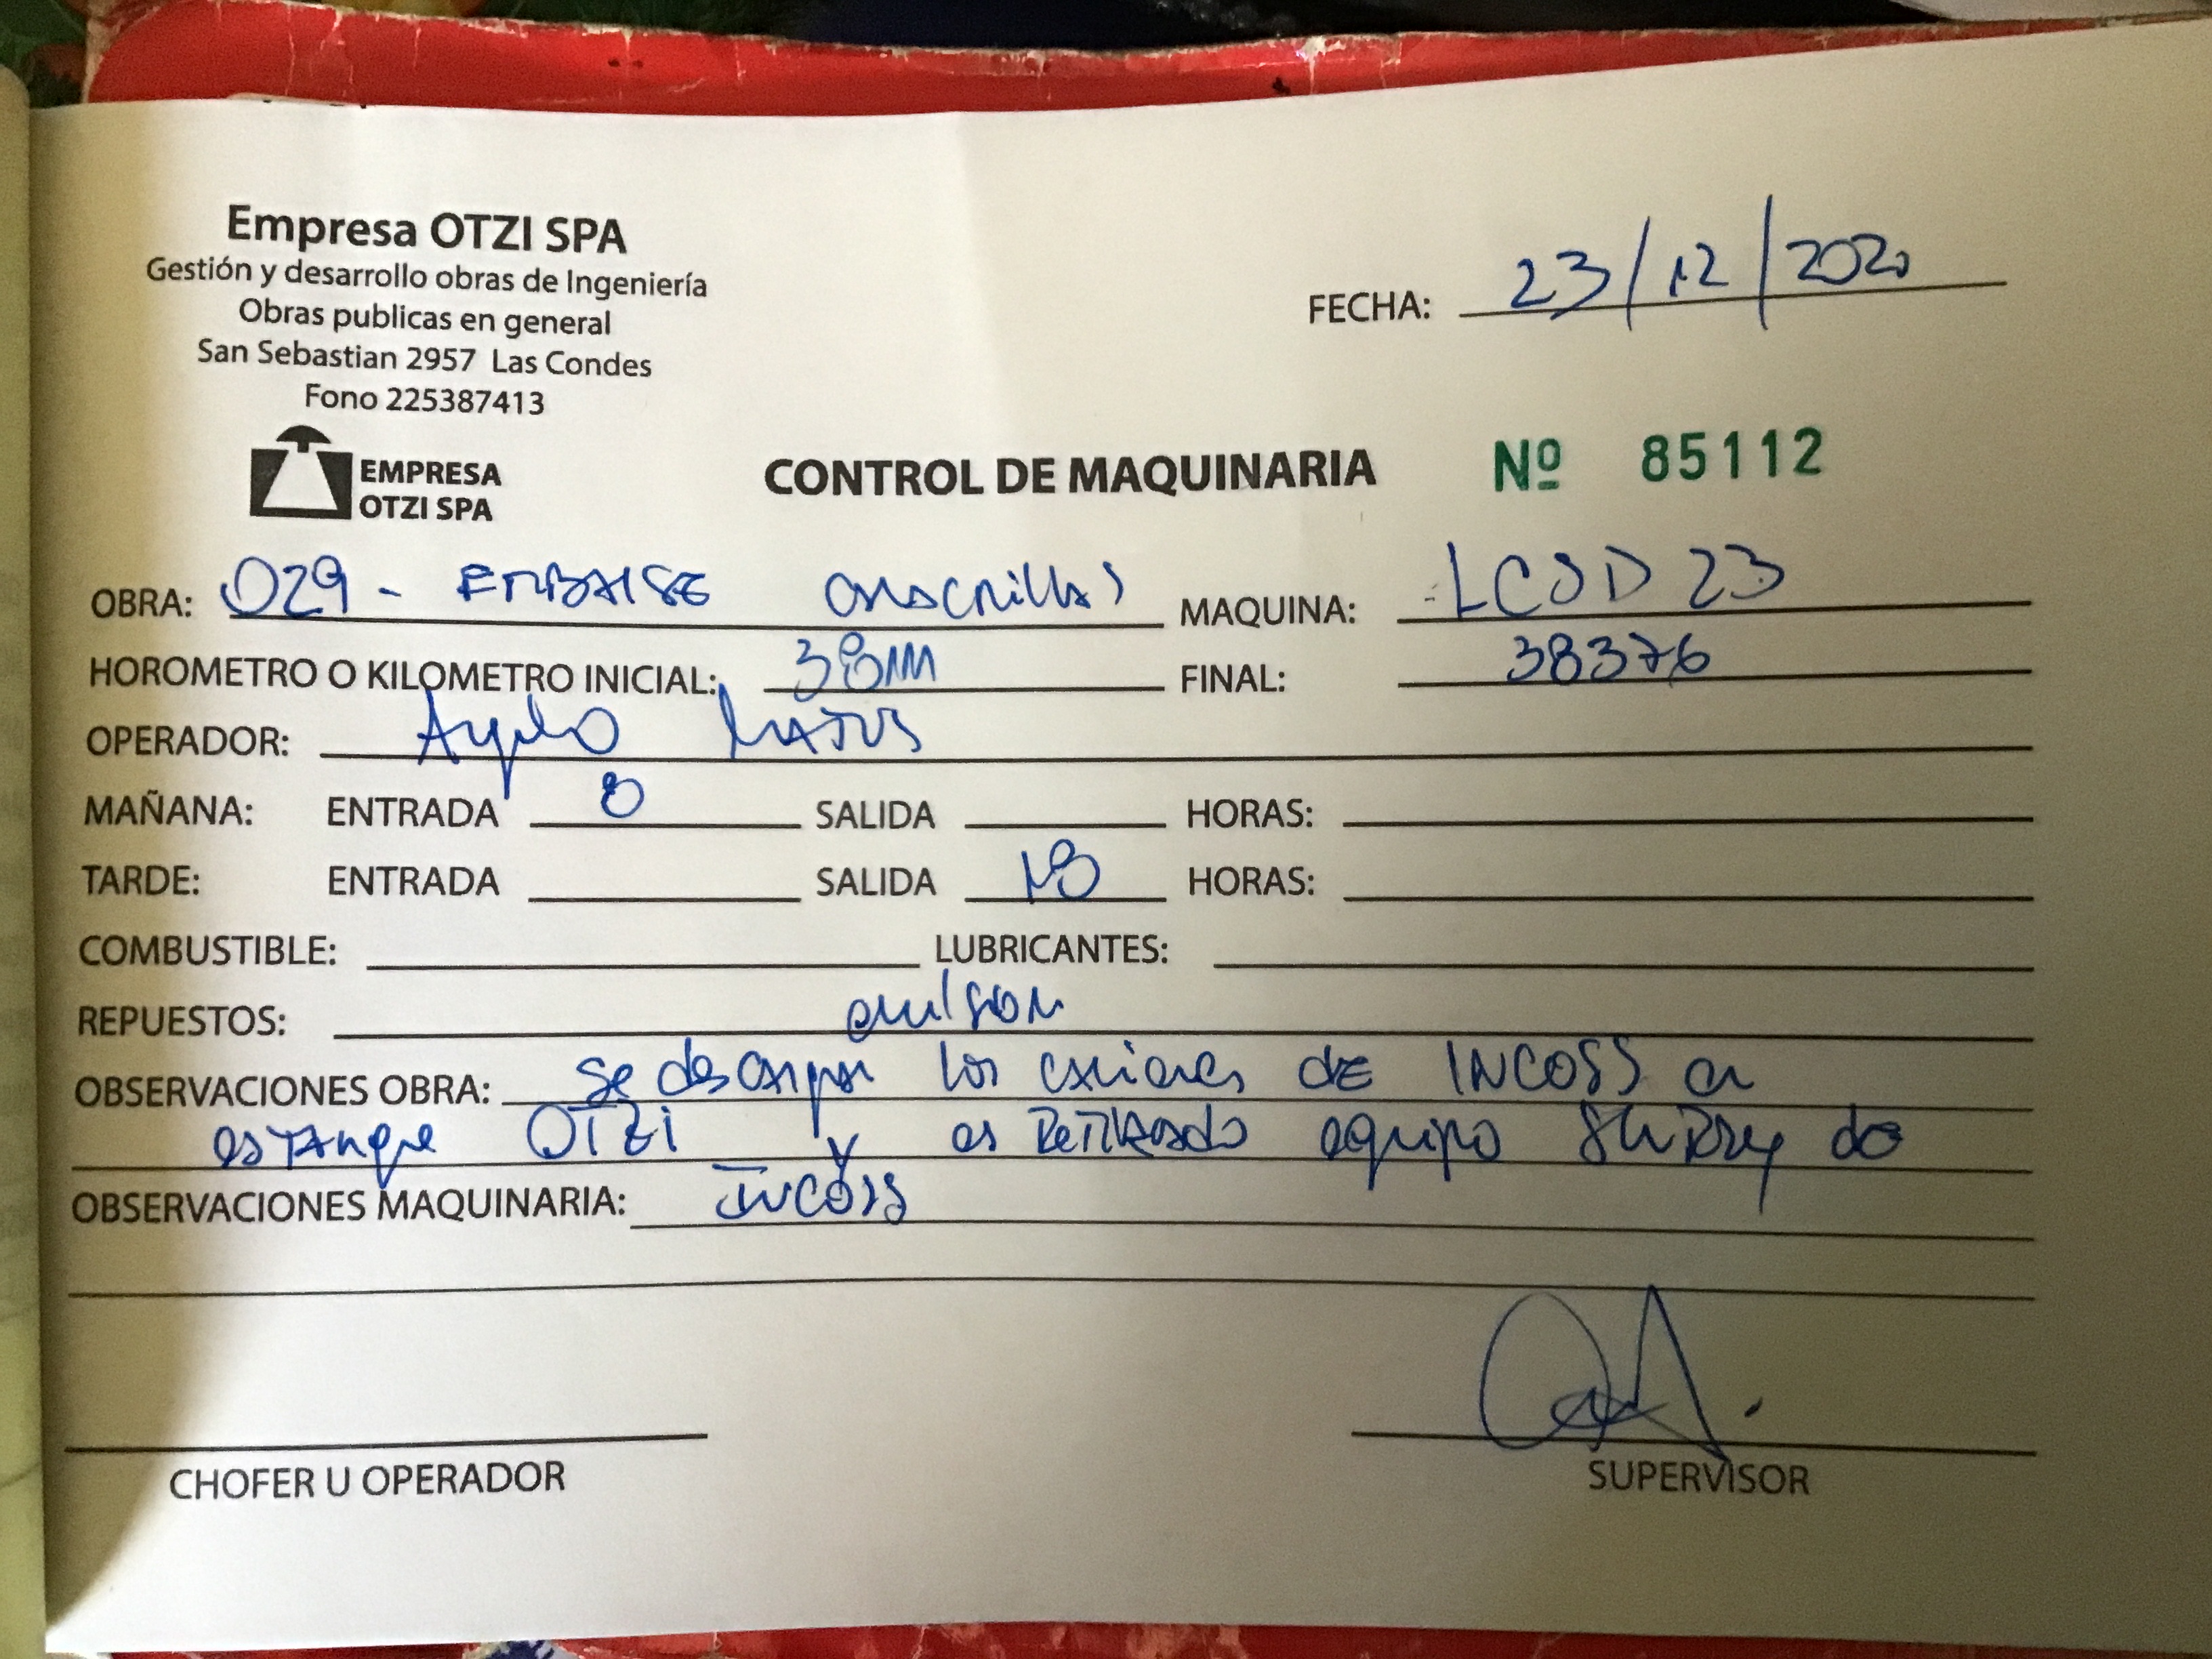 Empresa OTZI SPA
Gestión y desarrollo obras de Ingeniería
Obras publicas en general
San Sebastian 2957 Las Condes
Fono 225387413
FECHA: 23/12/2020
EMPRESA
OTZI SPA
CONTROL DE MAQUINARIA Nº 85112
OBRA: 029 - Embalse MAQUINA: LCSD 23
HOROMETRO O KILOMETRO INICIAL: FINAL: 38376
OPERADOR: Matus
MAÑANA: ENTRADA 8 SALIDA HORAS:
TARDE: ENTRADA SALIDA 18 HORAS:
COMBUSTIBLE: LUBRICANTES:
REPUESTOS: emulsion
OBSERVACIONES OBRA: Se descargan los camiones de INCOSS a
estanque OTZi y es retirado equipo
OBSERVACIONES MAQUINARIA: incoss
CHOFER U OPERADOR
SUPERVISOR